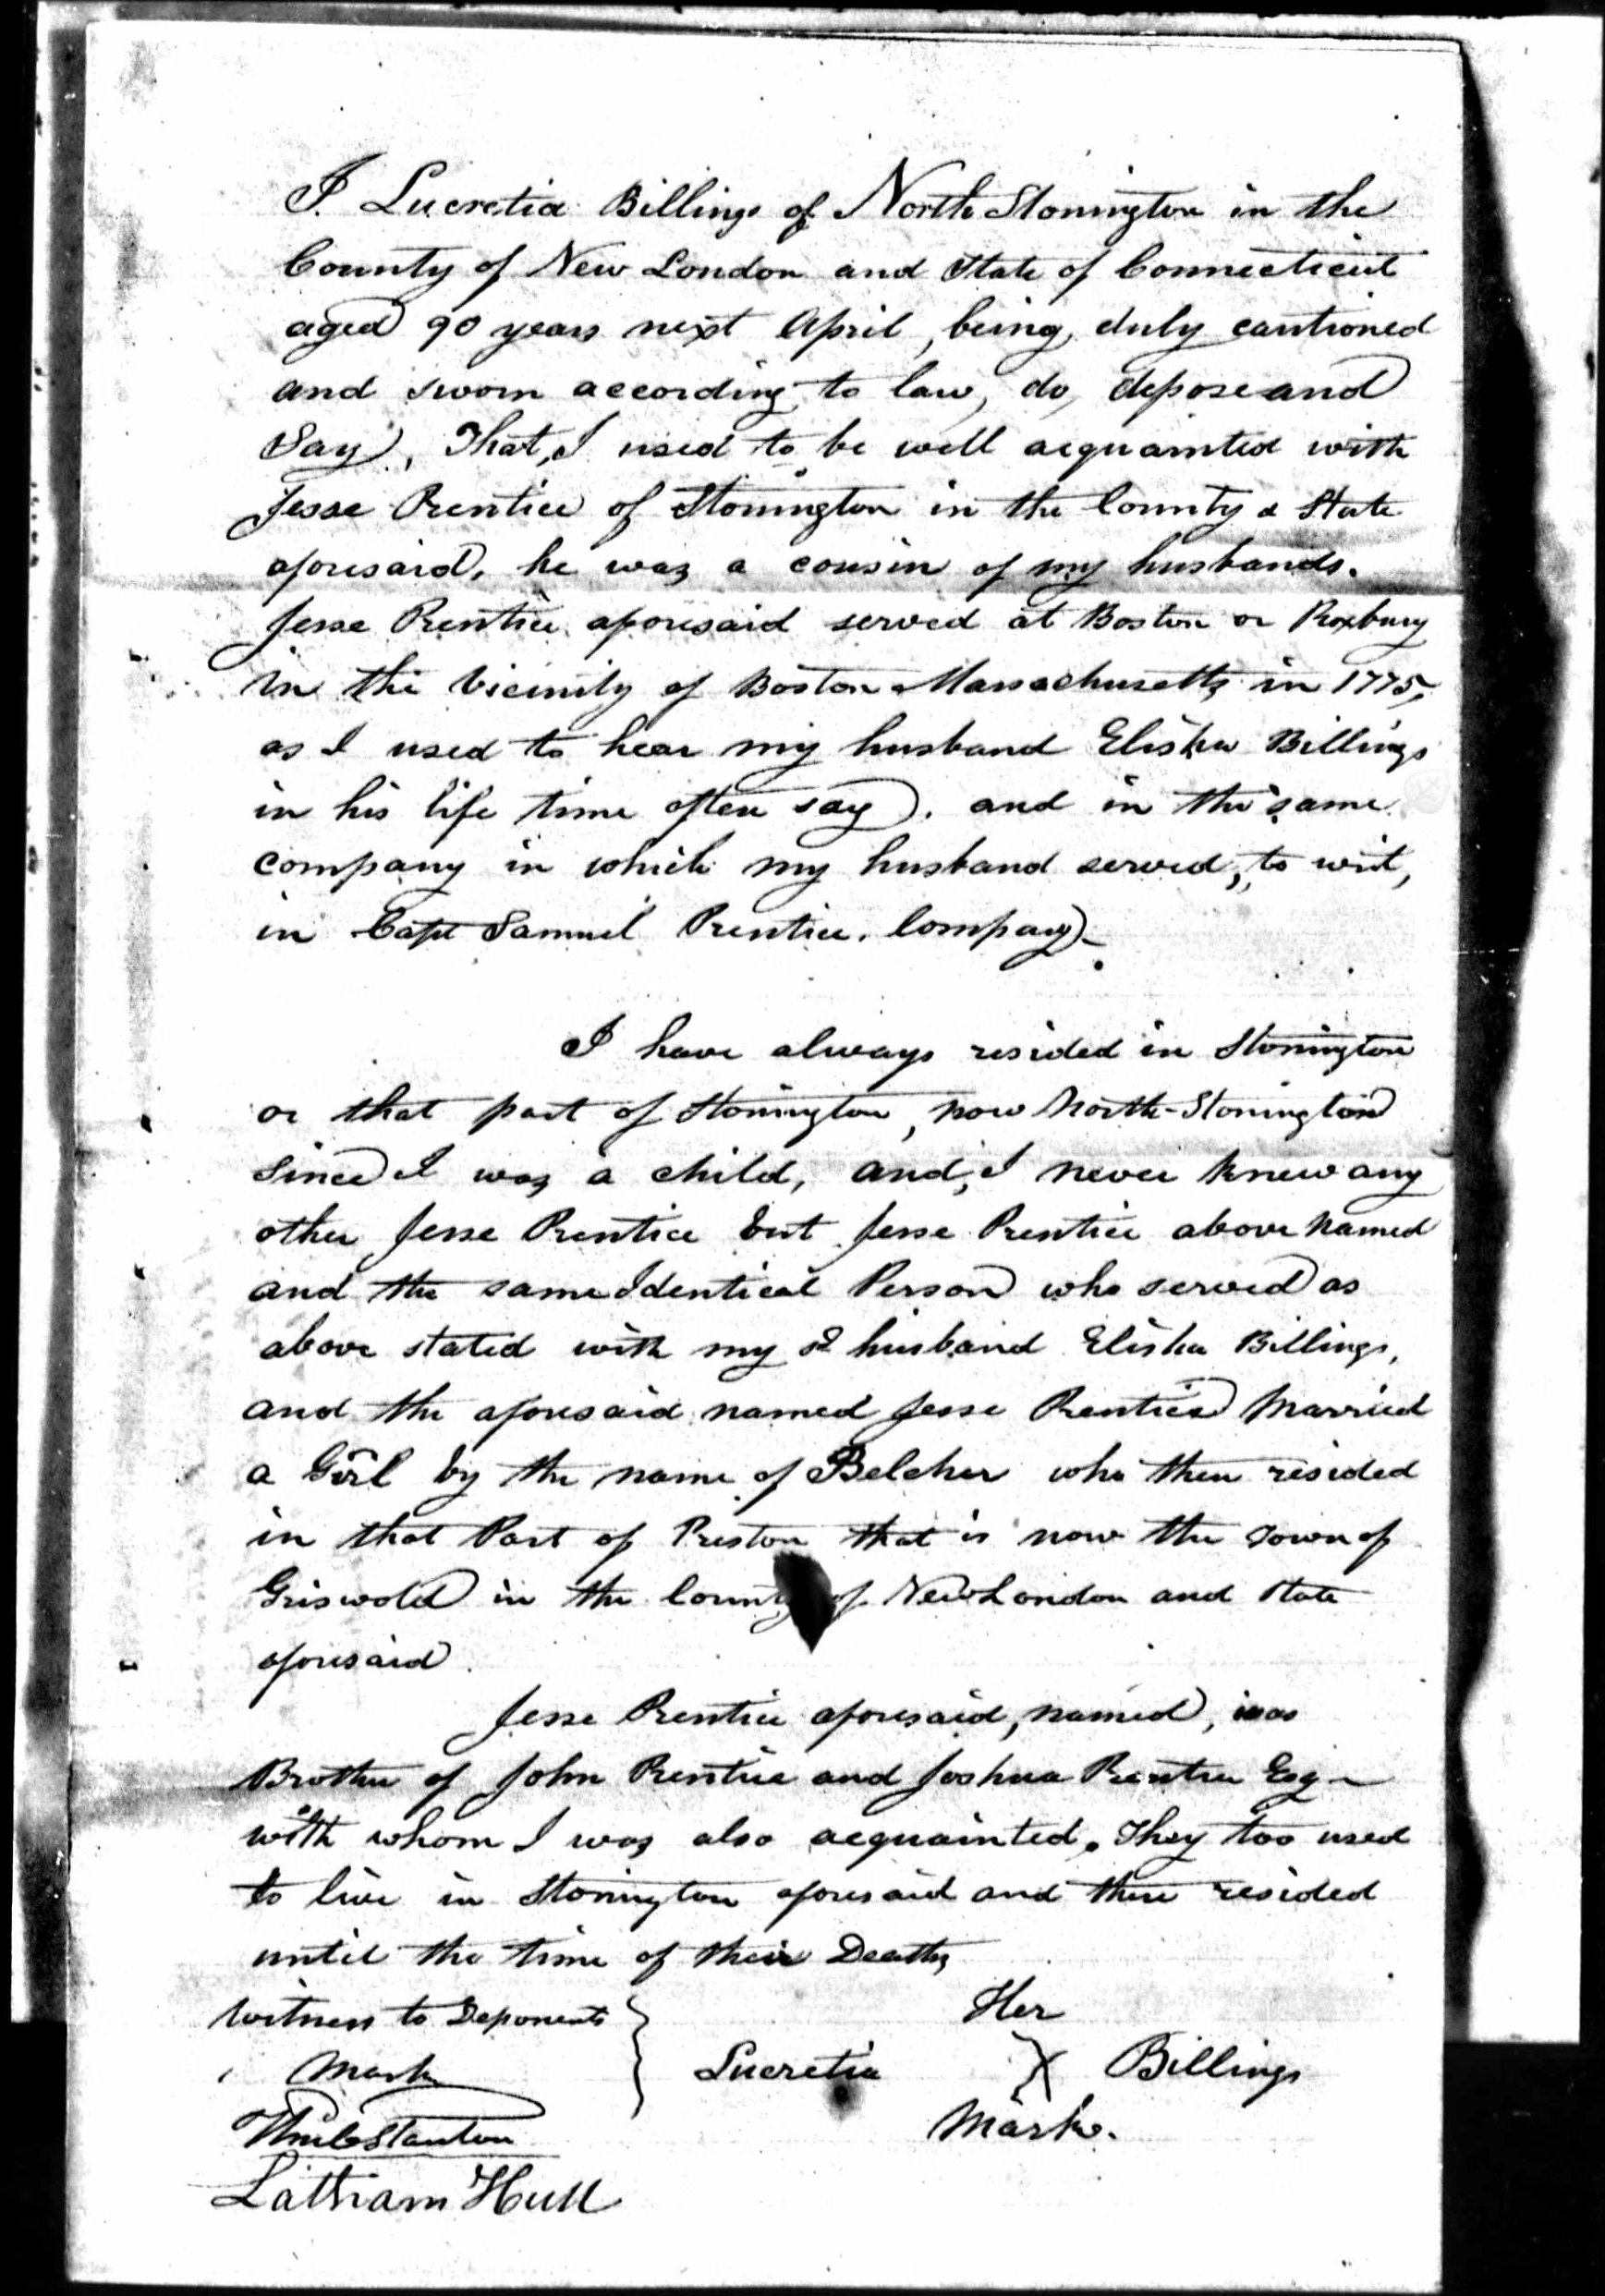 I. Lucretia Billings of North Stonington in the
County of New London and State of Connecticut
aged 90 years next April, being, duly cautioned
and sworn according to law, do, depose and
Say, That, I used to be well acquainted with
Jesse Prentice of Stonington in the County & State
aforesaid, he was a cousin of my husbands.
Jesse Prentice aforesaid served at Boston or Roxbury
in the vicinity of Boston Massachusetts in 1775,
as I used to hear my husband Elisha Billings
in his life time often say. and in the same
company in which my husband served, to wit,
in Capt Samuel Prentice. Company.
I have always resided in Stonington
or that part of Stonington, now North-Stonington
since I was a child, and, I never knew any
other Jesse Prentice but Jesse Prentice above Named
and the same Identical Person who served as
above stated with my sd husband Elisha Billings,
and the aforesaid named Jesse Prentice Married
a Girl by the name of Belcher who then resided
in that Part of Preston that is now the Town of
Griswold in the County of New London and State
aforesaid.
Jesse Prentice aforesaid, named, was
Brother of John Prentice and Joshua Prentice Esq-
with whom I was also acquainted. They too used
to live in Stonington aforesaid and there resided
until the time of their Deaths
Witness to Deponents
Mark
Her
Lucretia X Billings
Mark.
Stanton
Latham Hull